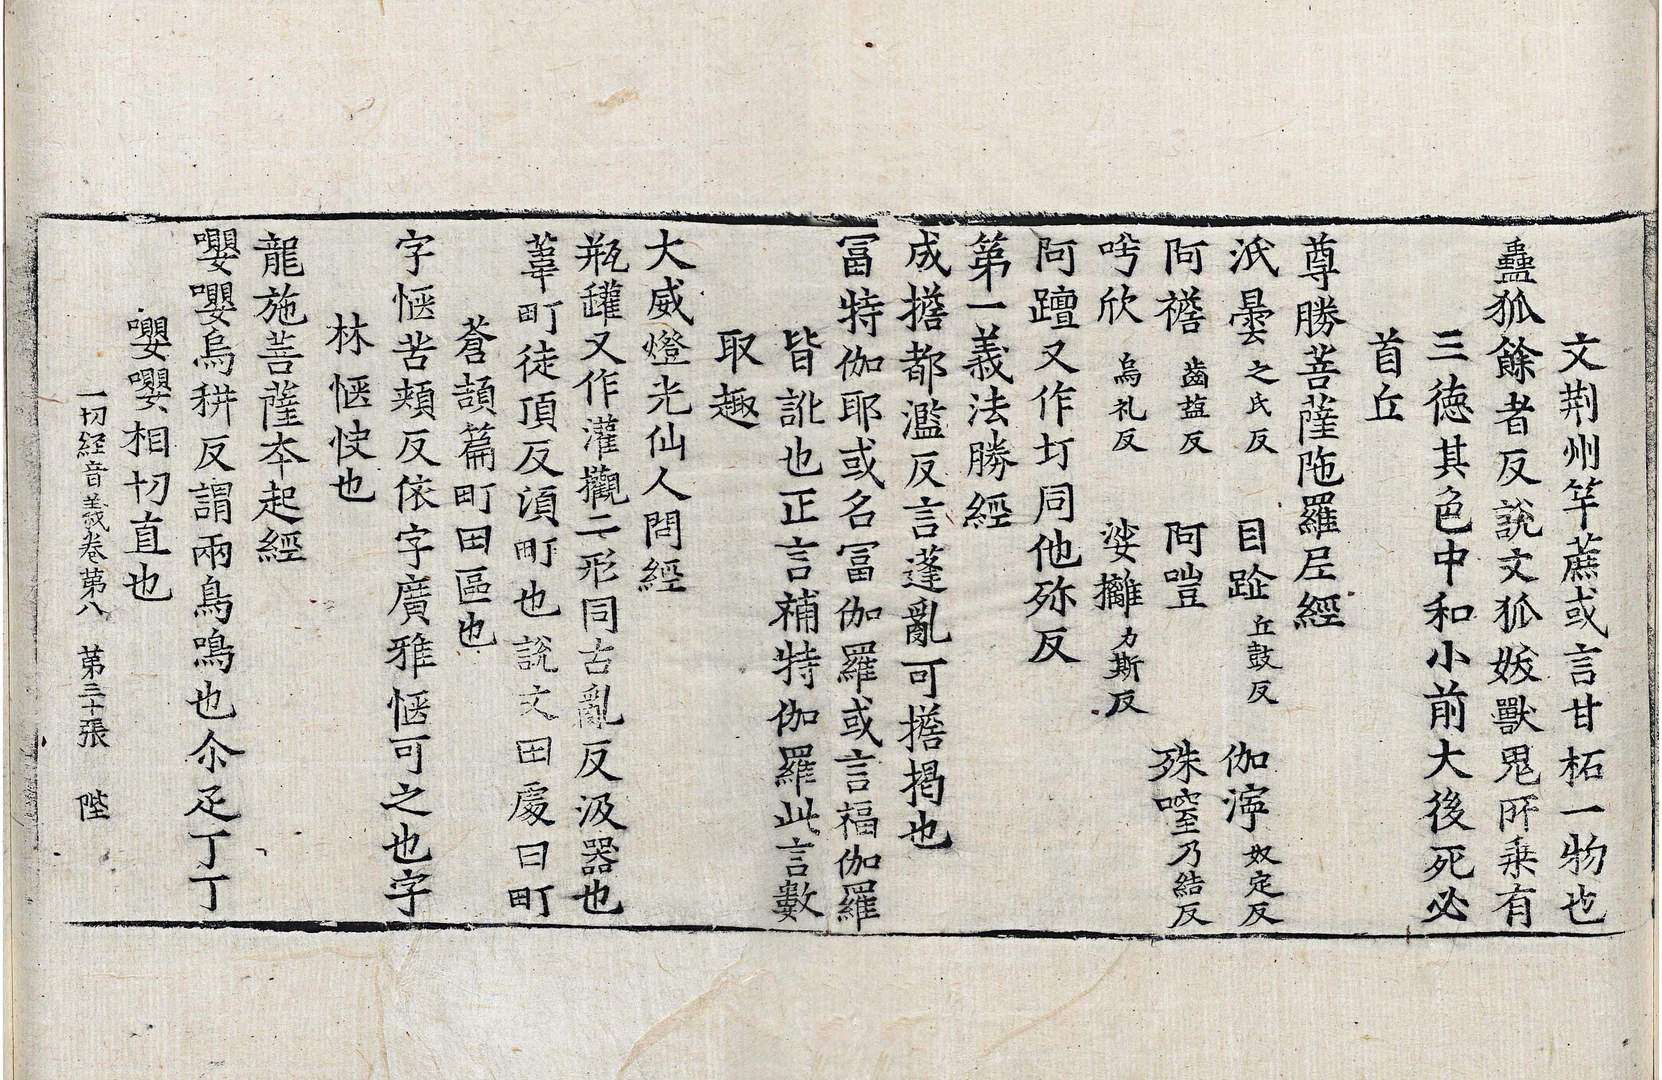 文荆州竿蔗或言甘柘一物也
蠱狐餘者反說文狐妖獸鬼所乗有
三徳其色中和小前大後死必
首丘
尊勝菩薩陁羅尼經
泜曇之氏反 目跐丘鼓反 伽濘奴定反
阿襜齒葅反 阿嘊 殊𡁲乃結反
呺欣烏礼反 娑攡力斯反
阿䠠又作圢同他殄反
第一義法勝經
成擔都濫反言蓬亂可擔掲也
冨特伽耶或名冨伽羅或言福伽羅
皆訛也正言補特伽羅此言數
取趣
大威燈光仙人問經
瓶罐又作灌鑵二形同古亂反汲器也
葦町徒頂反湏町也說文田處曰町
蒼頡篇町田區也
字愜苦頰反依字廣雅愜可之也字
林愜快也
龍施菩薩夲起經
嚶嚶烏耕反謂兩鳥鳴也尒疋丁丁
嚶嚶相切直也
一切経音義卷第八 第三十張 陛